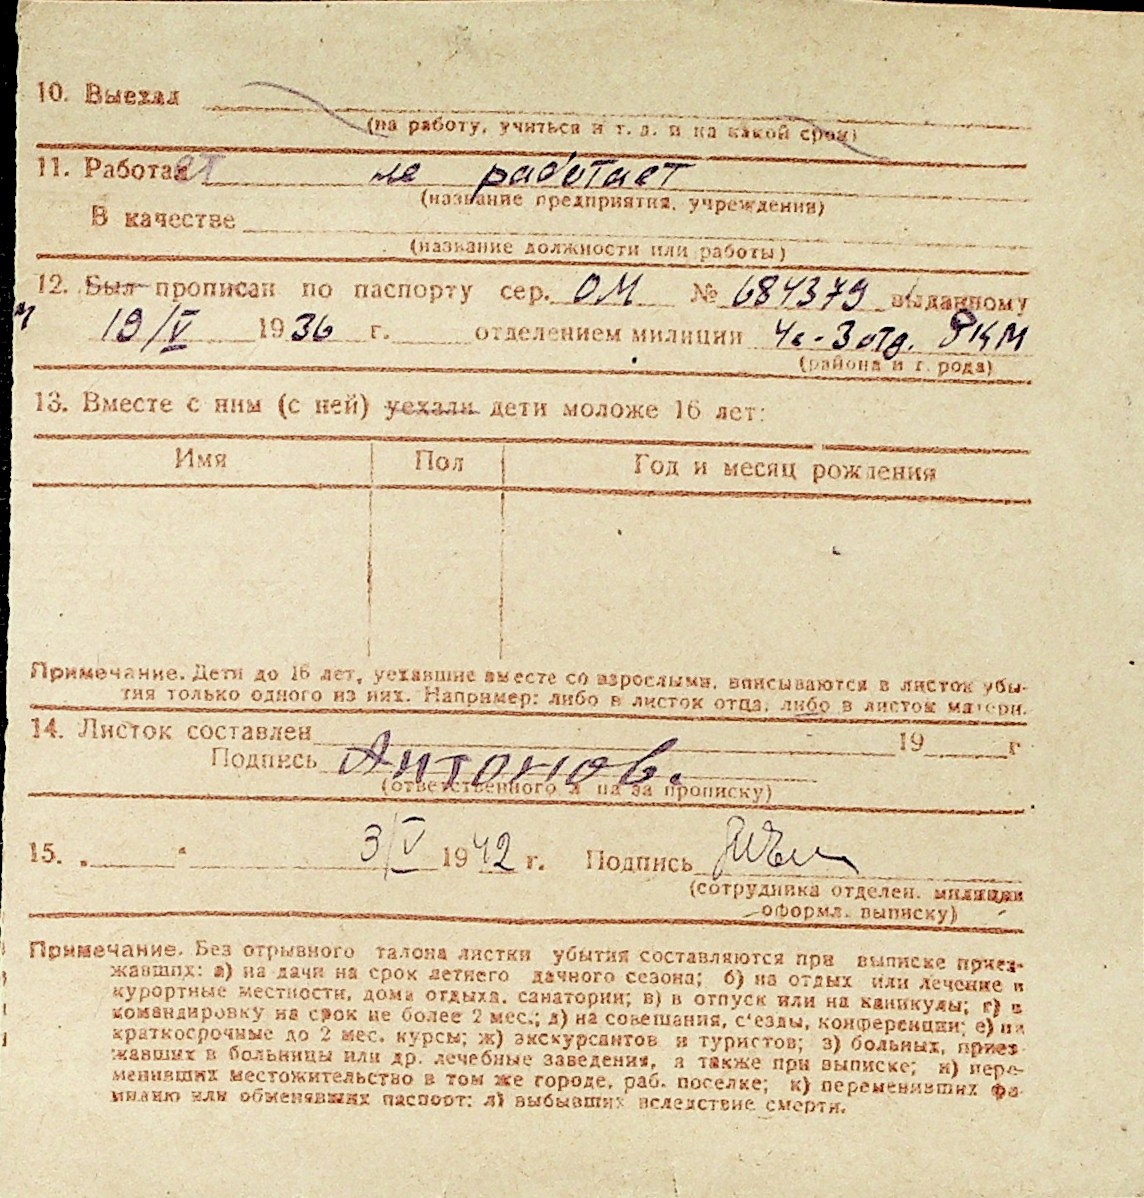 10. Выехал
(на работу, учиться и т. д. и на какой срок)
11. Работает не работает
(название предприятия, учреждения)
В качестве
(название должности или работы)
12. Был прописан по паспорту сер. ОМ № 684379 выданному
19/V 1936 г. отделением милиции 3 отд. РКМ
(района и города)
13. Вместе с ним (с ней) уехали дети моложе 16 лет:
Имя Пол Год и месяц рождения
Примечание. Дети до 16 лет, уехавшие вместе со взрослыми, вписываются в листок убы-
тия только одного из них. Например: либо в листок отца, либо в листок матери.
14. Листок составлен 19 г
Подпись Антонов.
(ответственного л на за прописку)
15. „ “ 3/V 1942 г. Подпись
(сотрудника отделен. милиции
оформл. выписку)
Примечание. Без отрывного талона листки убытия составляются при выписке приез-
жавших: а) на дачи на срок летнего дачного сезона; б) на отдых или лечение в
курортные местности, дома отдыха, санатории; в) в отпуск или на каникулы; г) в
командировку на срок не более 2 мес.; д) на совещания, с'езды, конференции; е) на
краткосрочные до 2 мес. курсы; ж) экскурсантов и туристов; з) больных, приез-
жавших в больницы или др. лечебные заведения, а также при выписке; и) пере-
менивших местожительство в том же городе, раб. поселке; к) переменивших фа-
милию или обменявших паспорт; л) выбывших вследствие смерти.